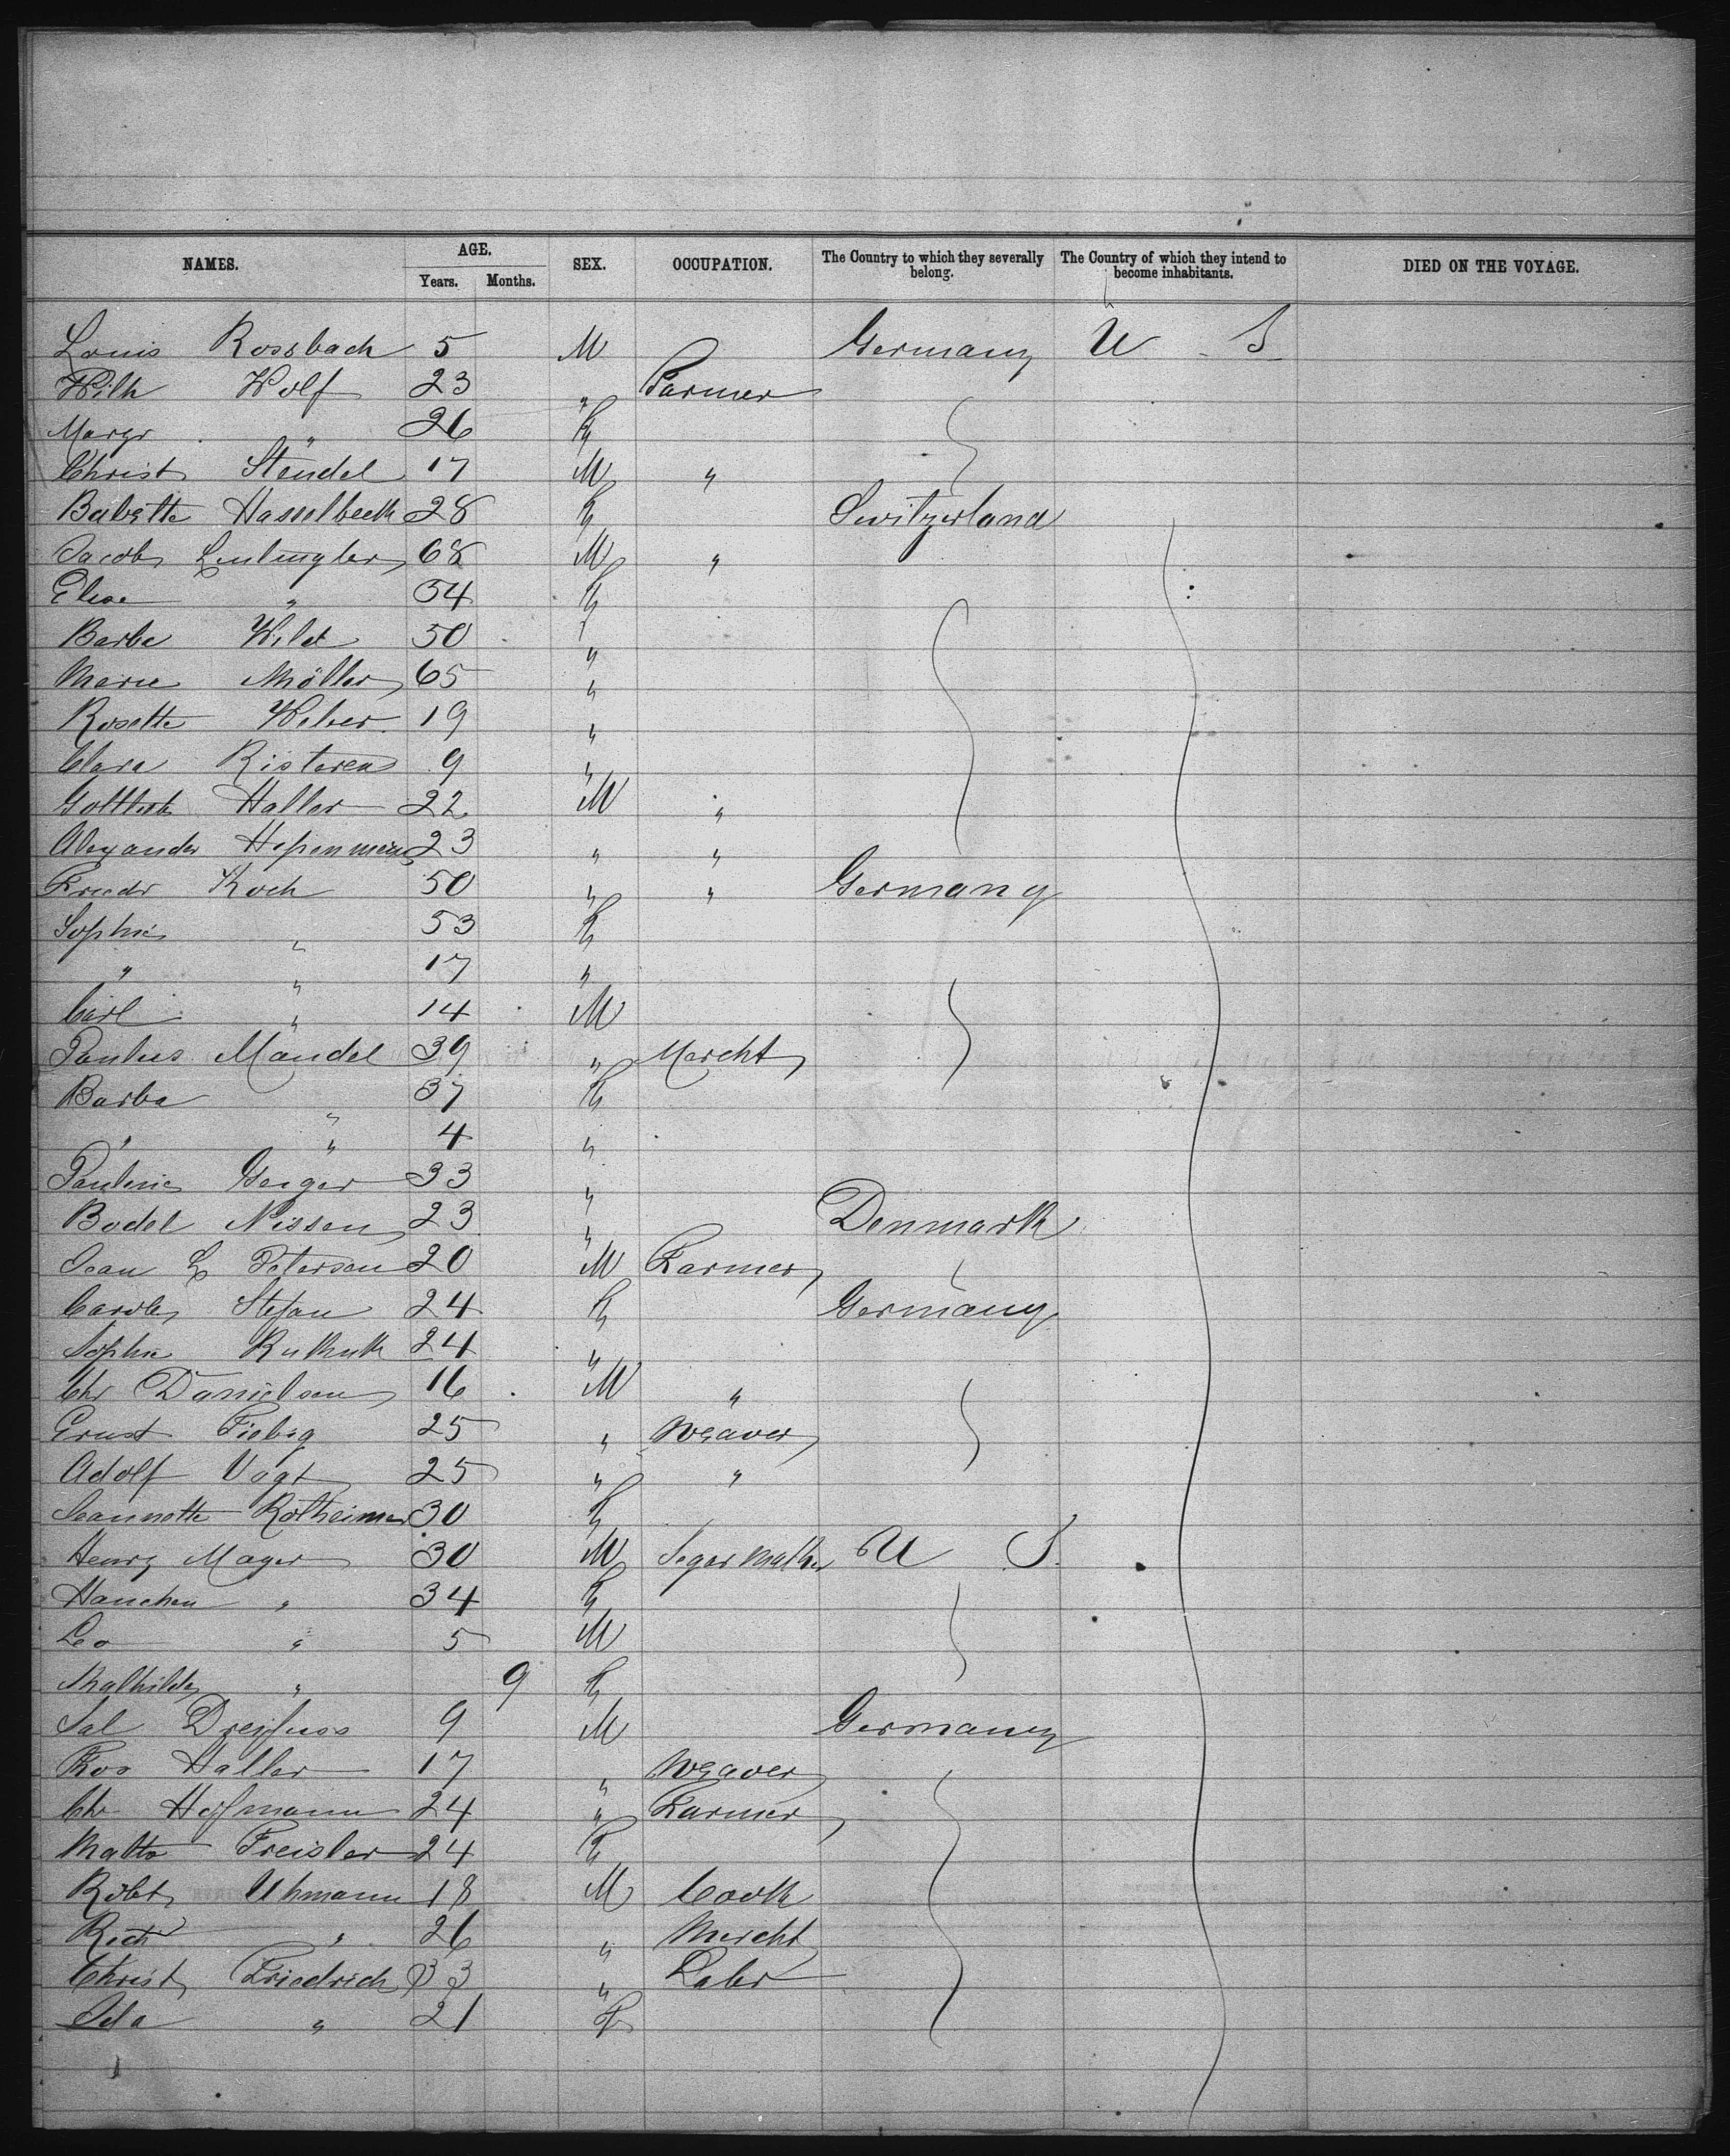 NAMES. AGE. SEX. OCCUPATION. The Country to which they severally belong. The Country of which they intend to become inhabitants. DIED ON THE VOYAGE.
Years. Months.
Louis Rossbach 5 M Germany U S
Wilh Wolf 23 " Farmer
Margr " 26 F
Christ Stendel 17 M "
Babette Hasselbeck 28 F Switzerland
Jacob 68 M "
Elise " 54 F
Barba Wild 50 "
Marie Möller 65 "
Rosette Weber 19 "
Clara 9 "
Gottlieb Haller 22 M "
Alexander 23 " "
Friedr Koch 50 " " Germany
Sophie " 53 F
" " 17 "
Carl " 14 M
Paulus Mandel 39 " Marcht
Barba " 37 F
" " 4 "
Pauline Geiger 33 "
Bodel Nissen 23 " Denmark
Jean L Petersen 20 M Farmer
Carole Stefan 24 F Germany
Sophie 24 "
Chr Danielsen 16 M "
Ernst Fiebig 25 " Weaver
Adolf Vogt 25 " "
Jeannette Rotheimer 30 F
Henry Mayer 30 M Segar Maker U S
Hanchen " 34 F
Leo " 5 M
Mathilde " 9 F
Sal Dreyfuss 9 M Germany
Ros Haller 17 " Weaver
Chr Hofmann 24 " Farmer
Freisler 24 F
Robt Uhmann 18 M Cook
Rich " 26 " Mercht
Christ Friedrich 33 " Labr
Ida " 21 F